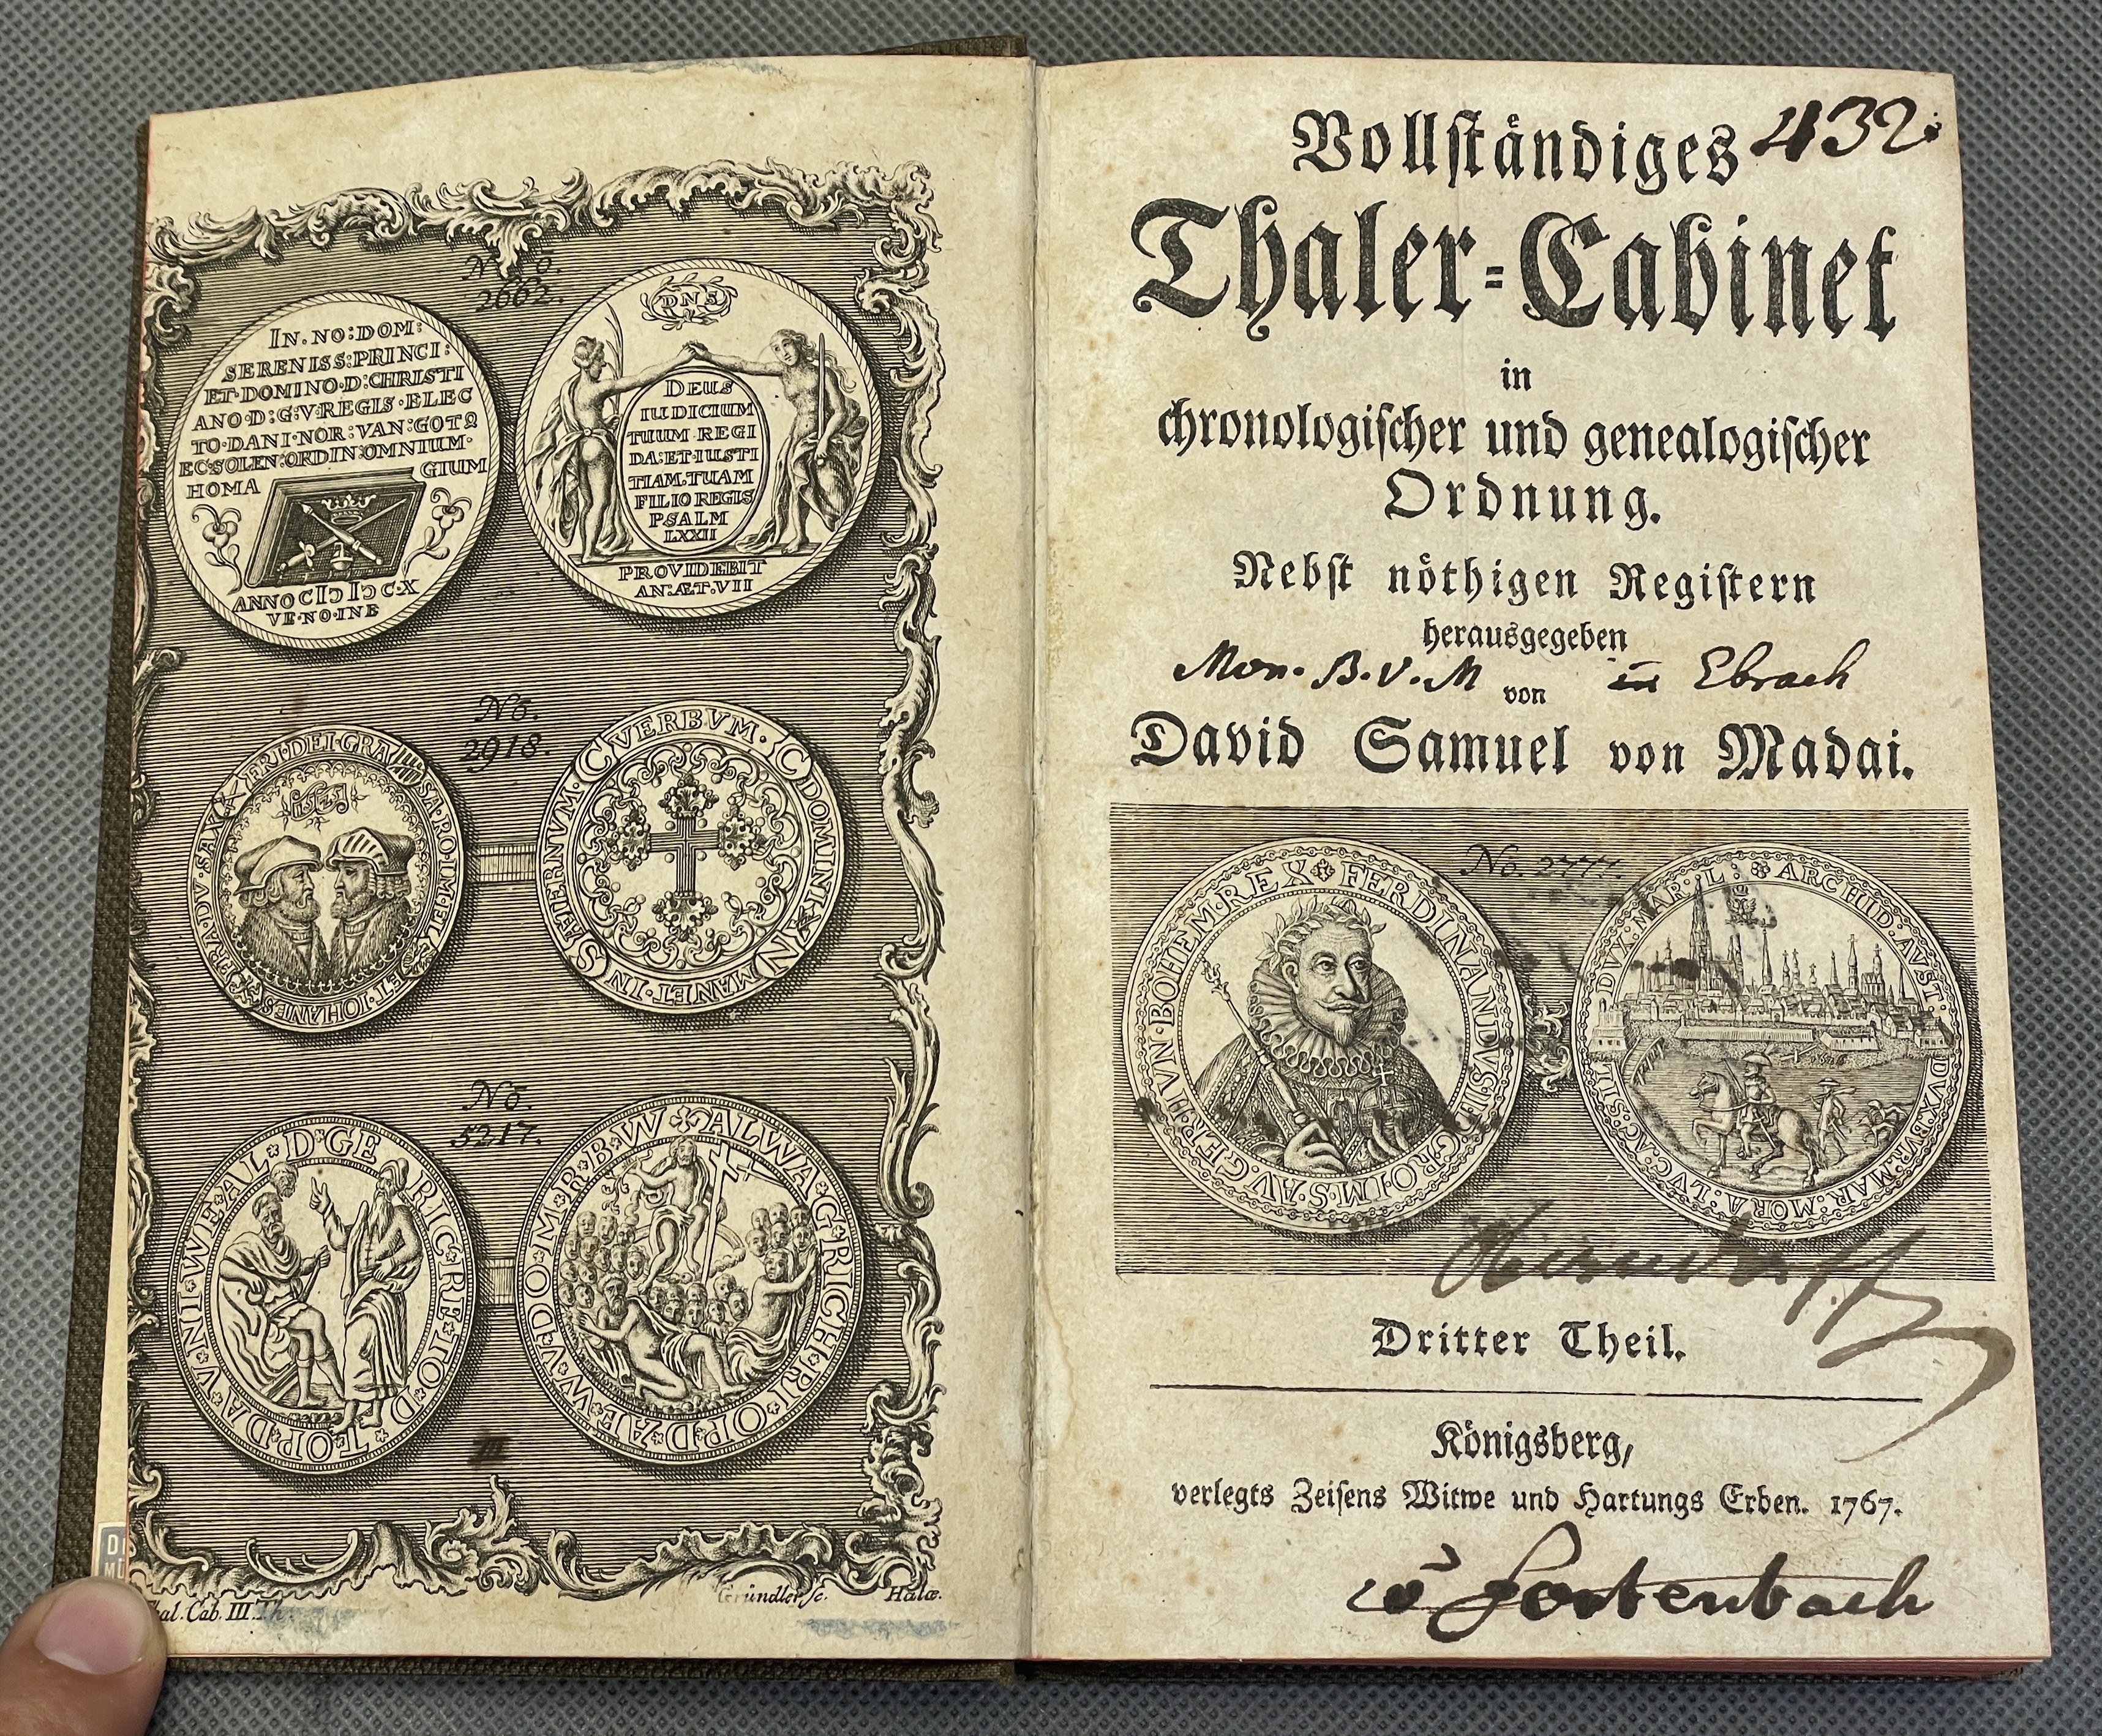 No.
2662.
IN·NO:DOM:
SERENISS:PRINCI:
ET·DOMINO·D:CHRISTI
ANO·D:G:V:REGIS·ELEC
TO·DANI·NOR:VAN:GOTQ
EC:SOLEN:ORDIN:OMNIUM·
HOMA GIUM
ANNO CIↃ IↃC C·X
VE·NO·INE
DNS
DEUS
IUDICIUM
TUUM REGI
DA:ET·IUSTI
TIAM·TUAM
FILIO REGIS
PSALM
LXXII
PROVIDEBIT
AN:ÆT·VII
No.
2918.
FRI·DEI·GRA SA·RO·IM·EL ET·IOHANES FRA·DV·SAX
VERBVM· DOMINI MANET·IN ÆTERNVM·
No.
5217.
VNI·WE·AL·D·GE RIC·RE·IO·D·T·OP·DA
ALWA·G·RICH·RI·OP·D·AE·W·V·DO·M·R·B·W
Thal. Cab. III. Th.
Gründler sc. Halæ.
432.
Vollständiges
Thaler=Cabinet
in
chronologischer und genealogischer
Ordnung.
Nebst nöthigen Registern
herausgegeben
Mon. B. V. M in Ebrach
von
David Samuel von Madai.
No. 2777.
FERDINANDVS·II·G·RO·IM·S·AV·GER·HVN·BOHEM·REX
ARCHID·AVST·DVX·BVR·MAR:MORA:LVC·AC·SIL:DVX·MAR·L:
Dritter Theil.
Königsberg,
verlegts Zeisens Witwe und Hartungs Erben. 1767.